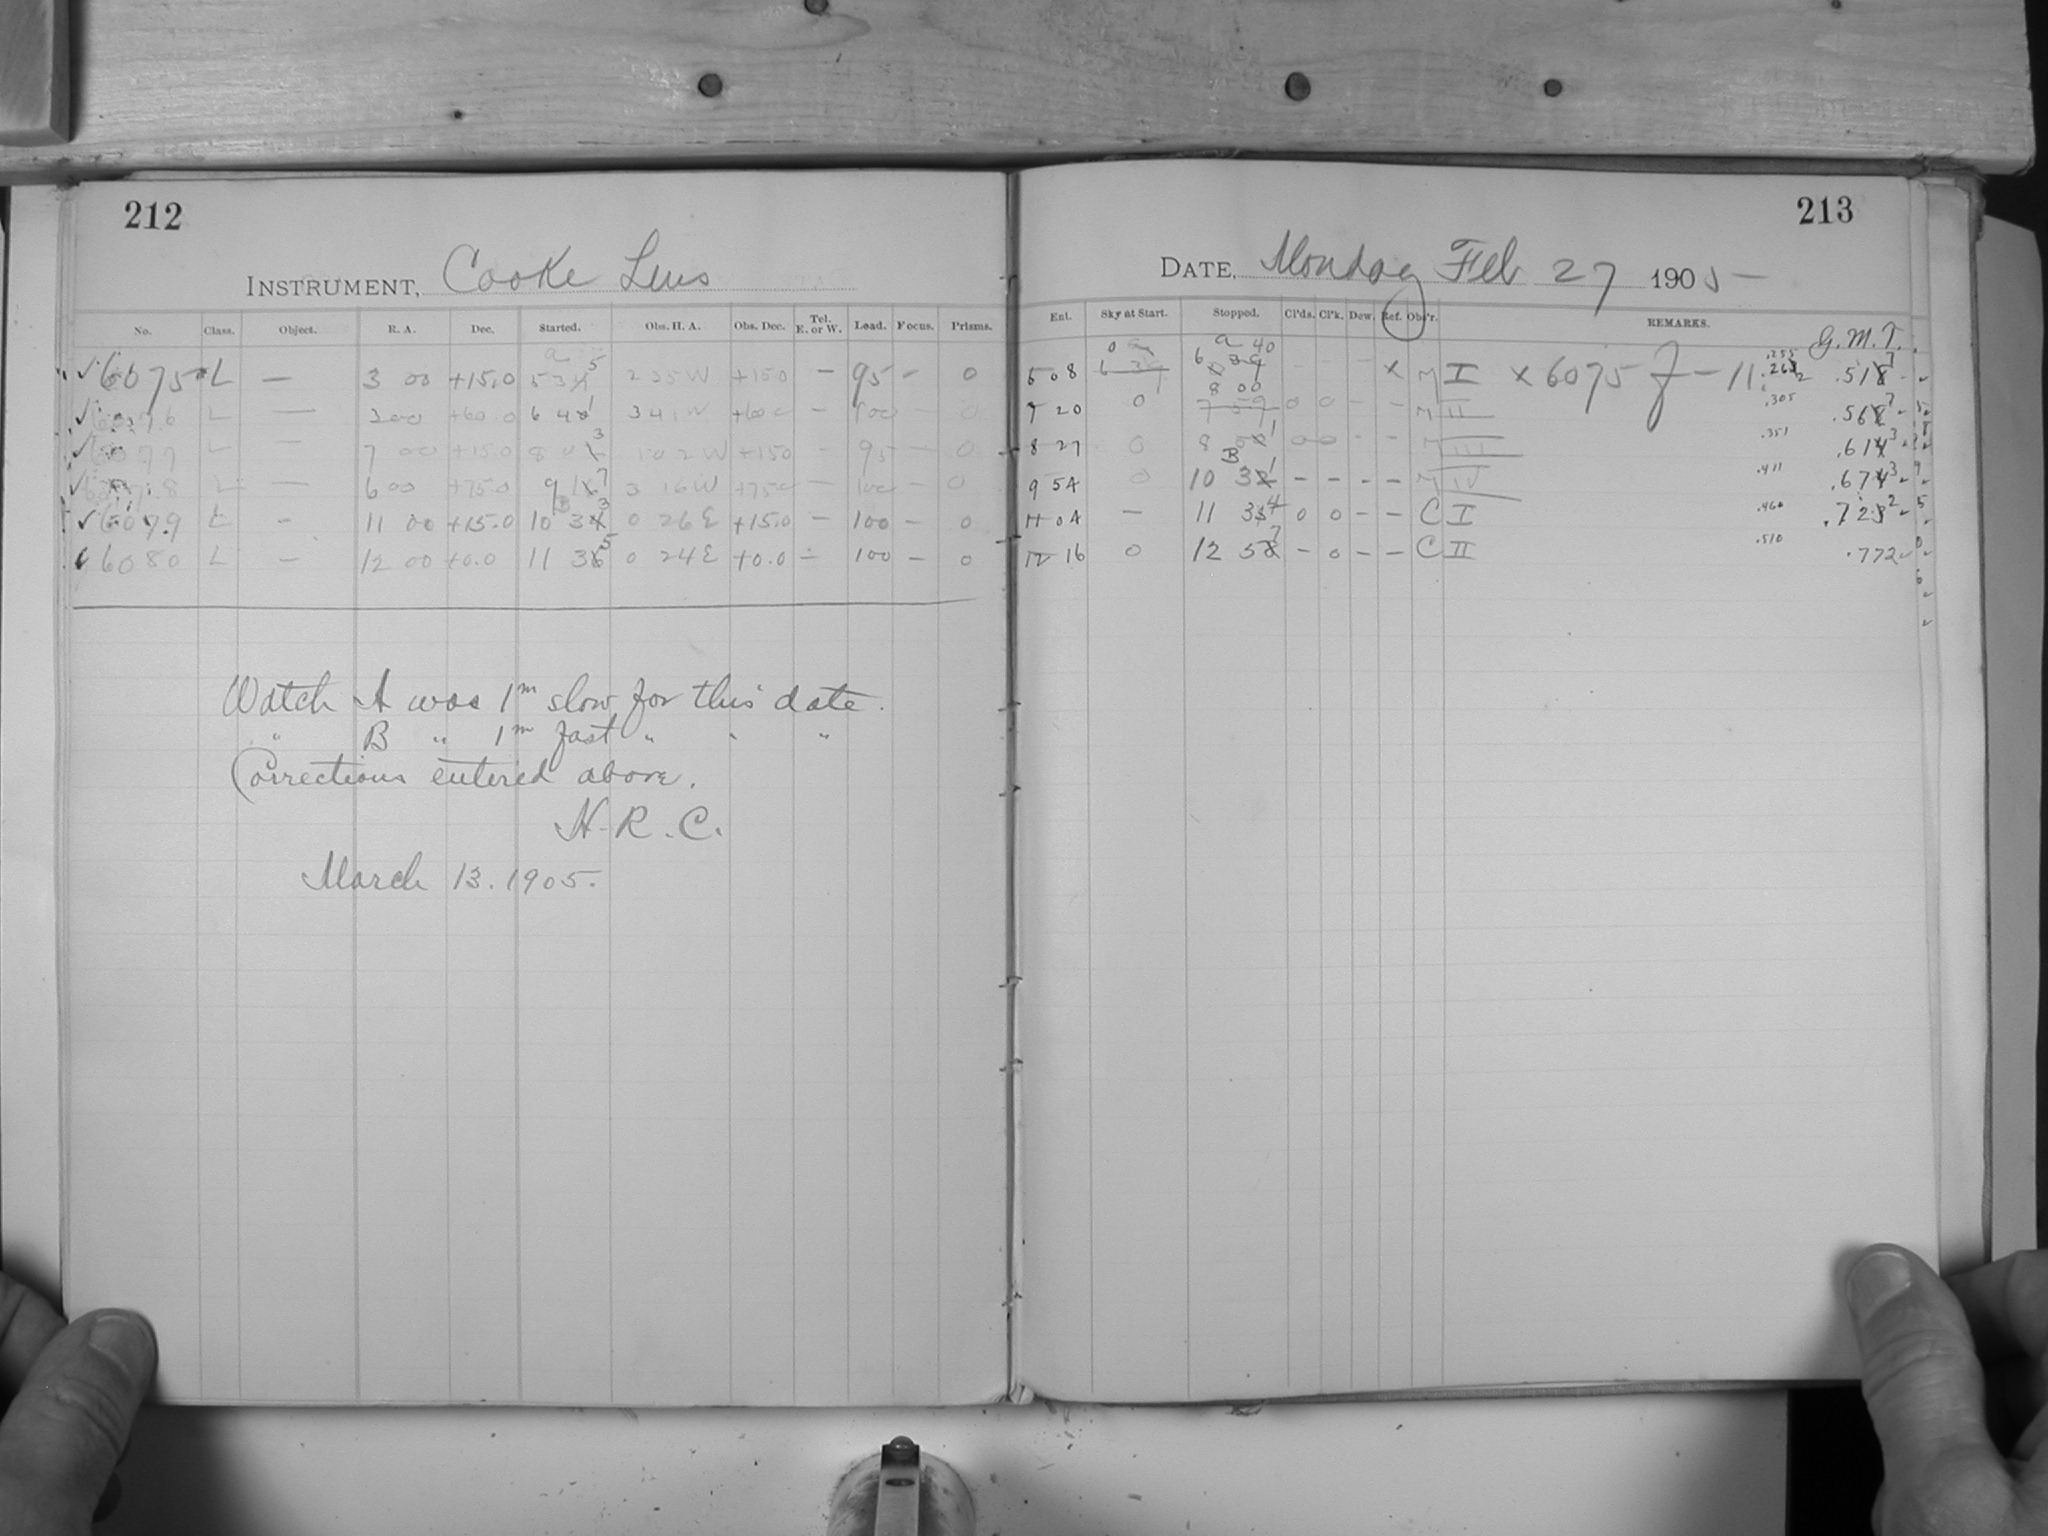 212
INSTRUMENT, Cooke Lens
No. Class. Object. R. A. Dec. Started. Obs. H. A. Obs. Dec. Tel. E. or W. Load. Focus. Prisms.
✓6075 L — 3 00 +15.0 5 5 2 25 W +15.0 — 95 — 0
✓6076 L — 3 00 +60.0 6 41 3 41 W +60.0 — 100 — 0
✓6077 L — 7 00 +15.0 8 03 1 02 W +15.0 — 95 — 0
✓6078 L — 6 00 +75.0 9 17 3 16 W +75.0 — 100 — 0
✓6079 L — 11 00 +15.0 10 33 0 26 E +15.0 — 100 — 0
✓6080 L — 12 00 +0.0 11 35 0 24 E +0.0 — 100 — 0
Watch A was 1m slow for this date.
" B " 1m fast " " "
Corrections entered above.
H. R. C.
March 13. 1905.
213
DATE, Monday Feb 27 1905
Ent. Sky at Start. Stopped. Cl'ds. Cl'k. Dew. Ref. Obs'r. REMARKS.
G. M. T.
6 40 × M I × 6075 J — 11 .517
7 20 0 8 00 0 0 - - M II .305 .567
8 27 0 0 0 - - M III .351 .613
9 54 0 10 31 - - - - M IV .411 .673
11 04 — 11 34 0 0 - - C I .460 .722
12 16 0 12 57 - 0 - - C II .510 .772